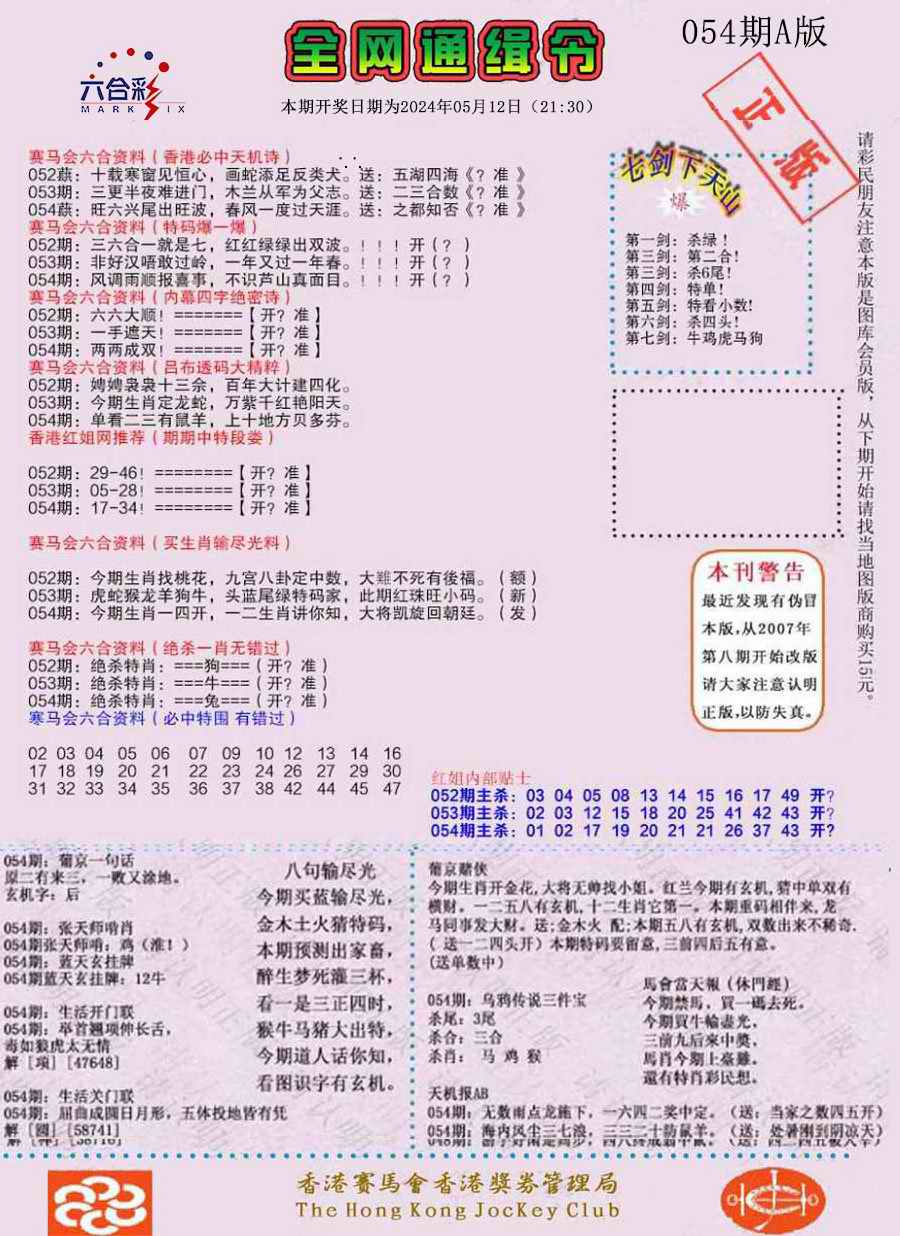 054期A版
全网通缉令
六合彩
MARK SIX
本期开奖日期为2024年05月12日（21:30）
正版
赛马会六合资料（香港必中天机诗）
052蕻：十载寒窗见恒心，画蛇添足反类犬。送：五湖四海《？准 》
053期：三更半夜难进门，木兰从军为父志。送：二三合数《？准 》
054蕻：旺六兴尾出旺波，春风一度过天涯。送：之都知否《？准 》
赛马会六合资料（特码爆一爆）
052期：三六合一就是七，红红绿绿出双波。！！！开（？）
053期：非好汉唔敢过岭，一年又过一年春。！！！开（？）
054期：风调雨顺报喜事，不识芦山真面目。！！！开（？）
赛马会六合资料（内幕四字绝密诗）
052期：六六大顺！=======【 开？准 】
053期：一手遮天！=======【 开？准 】
054期：两两成双！=======【 开？准 】
赛马会六合资料（吕布透码大精粹）
052期：娉娉袅袅十三余，百年大计建四化。
053期：今期生肖定龙蛇，万紫千红艳阳天。
054期：单看二三有鼠羊，上十地方贝多芬。
香港红姐网推荐（期期中特段娄）
052期：29-46！========【 开？准 】
053期：05-28！========【 开？准 】
054期：17-34！========【 开？准 】
赛马会六合资料（买生肖输尽光料）
052期：今期生肖找桃花，九宫八卦定中数，大難不死有後福。（额）
053期：虎蛇猴龙羊狗牛，头蓝尾绿特码家，此期红珠旺小码。（新）
054期：今期生肖一四开，一二生肖讲你知，大将凯旋回朝廷。（发）
赛马会六合资料（绝杀一肖无错过）
052期：绝杀特肖：===狗===（开？准）
053期：绝杀特肖：===牛===（开？准）
054期：绝杀特肖：===兔===（开？准）
寒马会六合资料（必中特围 有错过）
02 03 04 05 06 07 09 10 12 13 14 16
17 18 19 20 21 22 23 24 26 27 29 30
31 32 33 34 35 36 37 38 42 44 45 47
七剑下天山
爆
第一剑：杀绿！
第三剑：第二合！
第三剑：杀6尾！
第四剑：特单！
第五剑：特看小数！
第六剑：杀四头！
第七剑：牛鸡虎马狗
请彩民朋友注意本版是图库会员版，从下期开始请找当地图版商购买15元。
本刊警告
最近发现有伪冒
本版，从2007年
第八期开始改版
请大家注意认明
正版，以防失真。
红姐内部贴士
052期主杀：03 04 05 08 13 14 15 16 17 49 开？
053期主杀：02 03 12 15 18 20 25 41 42 43 开？
054期主杀：01 02 17 19 20 21 21 26 37 43 开？
054期：葡京一句话
原二有来三，一败又涂地。
玄机字：后
054期：张天师啃肖
054期张天师啃：鸡（淮！）
054期：蓝天玄挂牌
054期蓝天玄挂牌：12牛
054期：生活开门联
054期：举首翘项伸长舌，
毒如狼虎太无情
解［项］［47648］
054期：生活关门联
054期：屈曲成圆日月形，五体投地皆有凭
解［圆］［58741］
八句输尽光
今期买蓝输尽光，
金木土火猜特码，
本期预测出家畜，
醉生梦死灌三杯，
看一是三正四时，
猴牛马猪大出特，
今期道人话你知，
看图识字有玄机。
葡京赌侠
今期生肖开金花，大将无帅找小姐。红兰今期有玄机，猜中单双有
横财。一二五八有玄机，十二生肖它第一。本期重码相伴来，龙
马同事发大财。送：金木火 配：本期五八有玄机，双数出来不稀奇.
（送一二四头开）本期特码要留意，三前四后五有意。
(送单数中)
054期：乌鸦传说三件宝
杀尾：3尾
杀合：三合
杀肖： 马 鸡 猴
馬會當天報（休門經）
今期禁馬，買一碼去死。
今期買牛輸盡光，
三前九后來中獎，
馬肖今期上臺雖。
還有特肖彩民想。
天机报AB
054期：无数雨点龙施下，一六四二奖中定。（送：当家之数四五开）
054期：海内风尘三七浪，三三二十防鼠羊。（送：处暑刚到阴凉天）
香港賽馬會香港獎券管理局
The Hong Kong JocKey Club